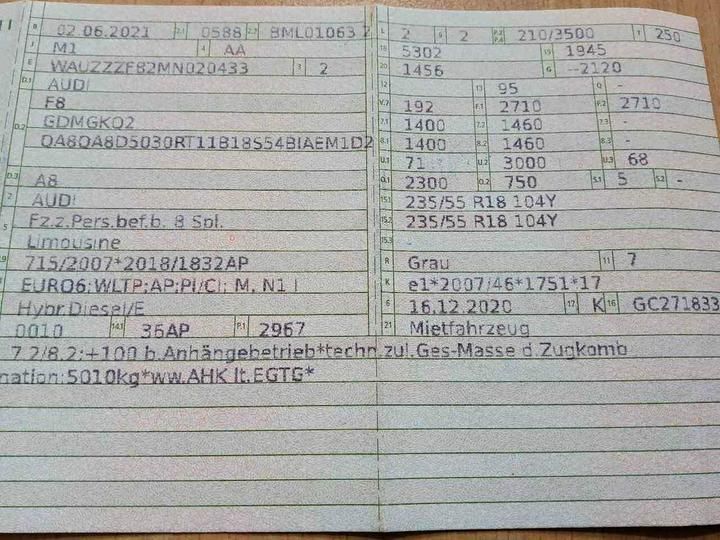 B 02.06.2021 2.1 0588 2.2 BML01063 7
J M1 4 AA
E WAUZZZF82MN020433 3 2
D.1 AUDI
F8
D.2 GDMGKQ2
QA8QA8D5030RT11B18S54BIAEM1D2
D.3 A8
2 AUDI
5 Fz.z.Pers.bef.b. 8 Spl.
Limousine
715/2007*2018/1832AP
EURO6;WLTP;AP;PI/CI; M, N1 I
Hybr.Diesel/E
0010 14.1 36AP P.1 2967
7.2/8.2:+100 b.Anhängebetrieb*techn.zul.Ges-Masse d.Zugkomb
nation:5010kg*ww.AHK lt.EGTG*
L 2 9 2 P.2 P.4 210/3500 T 250
18 5302 19 1945
20 1456 G --2120
12 13 95 Q -
V.7 192 F.1 2710 F.2 2710
7.1 1400 7.2 1460 7.3 -
8.1 1400 8.2 1460 8.3 -
U.1 71 U.2 3000 U.3 68
O.1 2300 O.2 750 S.1 5 S.2 -
15.1 235/55 R18 104Y
15.2 235/55 R18 104Y
15.3 -
R Grau 11 7
K e1*2007/46*1751*17
6 16.12.2020 17 K 16 GC271833
21 Mietfahrzeug